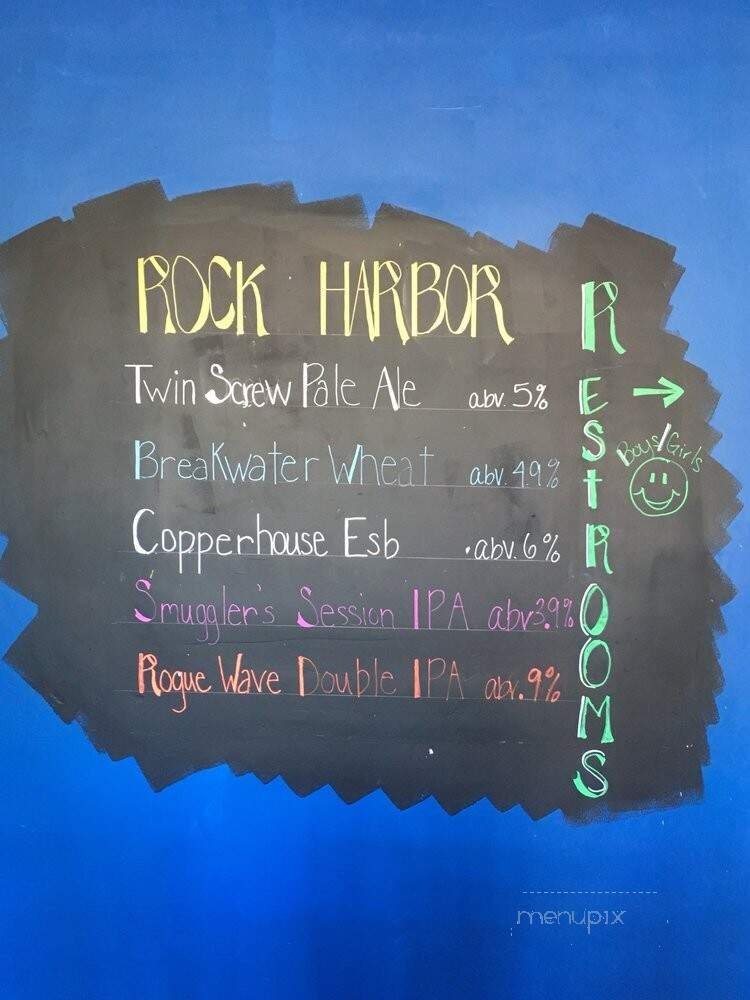 ROCK HARBOR
Twin Screw Pale Ale abv. 5%
BreaKwater Wheat abv. 4.9%
Copperhouse Esb .abv. 6%
Smuggler's Session IPA abv 3.9%
Rogue Wave Double IPA abv. 9%
REStROOMS
→
Boys/Girls
menupix